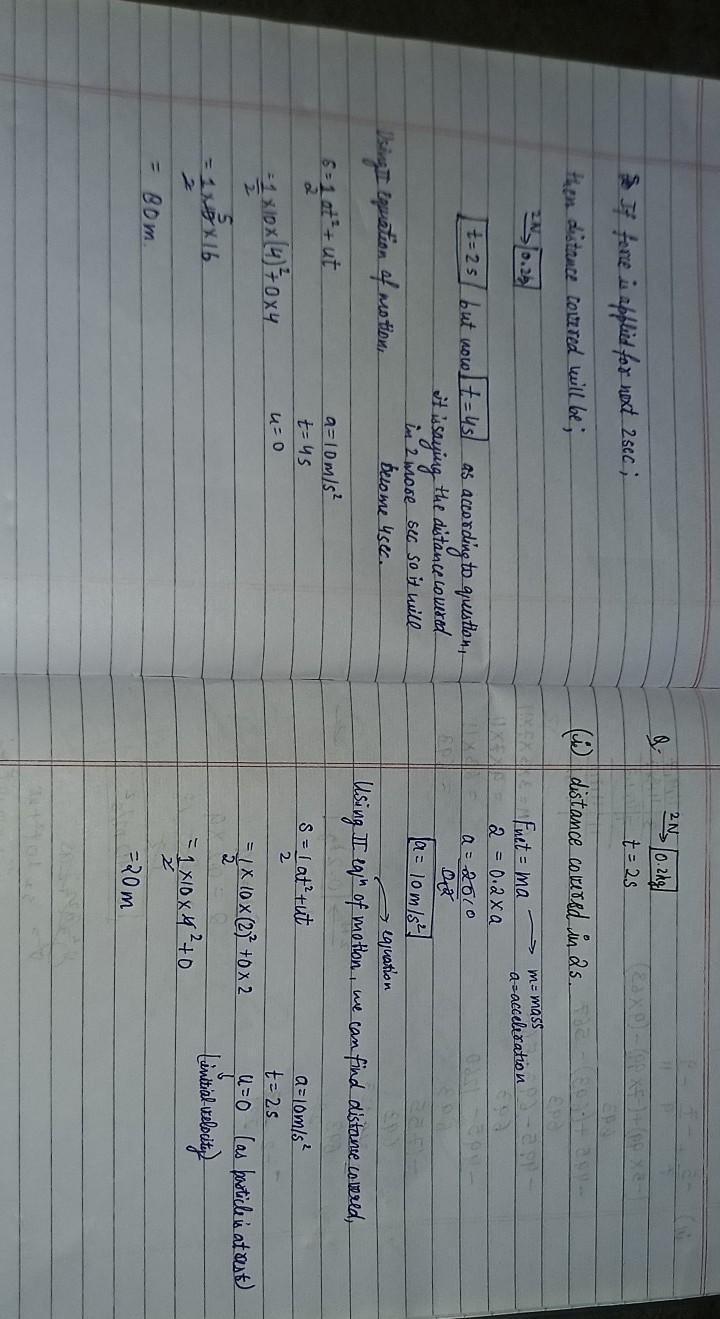 Q.
2N → 0.2kg
t = 2s
(i) distance covered in 2s.
Fnet = ma → m = mass
a = acceleration
2 = 0.2 × a
a = 20 10
0.2
a = 10 m/s²
→ equation
Using II eqⁿ of motion, we can find distance covered,
S = 1/2 at² + ut a = 10 m/s²
t = 2s
= 1/2 × 10 × (2)² + 0 × 2 u = 0 (as particle is at rest)
(initial velocity)
= 1/2 × 10 × 4² + 0
= 20 m
If force is applied for next 2 sec;
then distance covered will be;
2N → 0.2kg
t = 2s but now t = 4s as according to question,
it is saying the distance covered
in 2 more sec so it will
become 4 sec.
Using II equation of motion,
S = 1/2 at² + ut a = 10 m/s²
t = 4s
= 1/2 × 10 × (4)² + 0 × 4 u = 0
= 1/2 × 10 5 × 16
= 80 m.